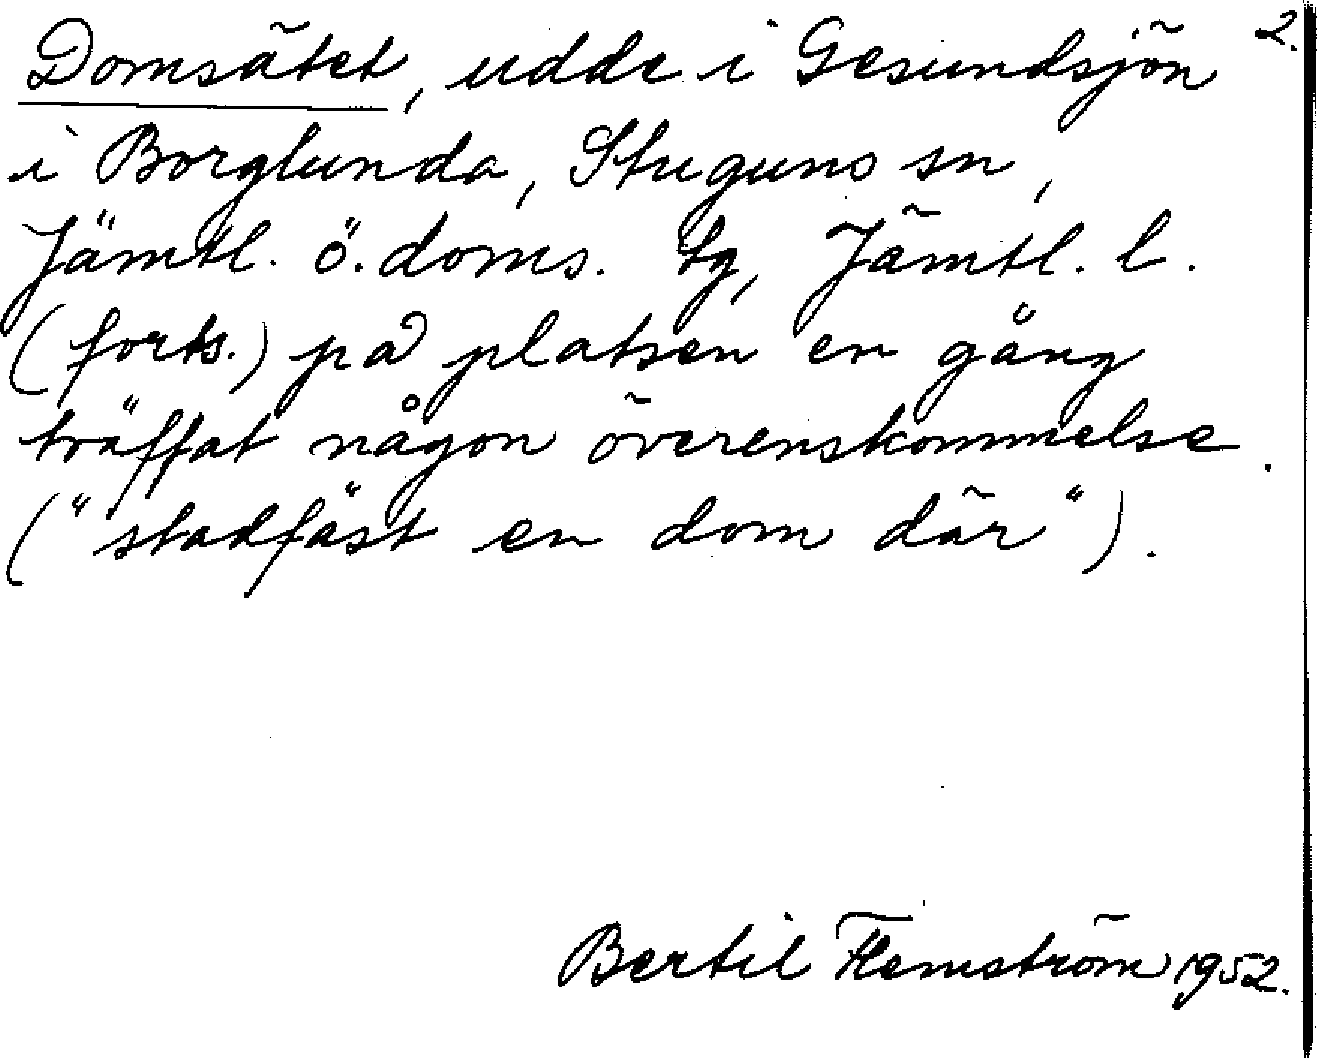 Domsätet, udde i Gesundsjön 2.
i Borglunda, Stuguns sn,
Jämtl. ö. doms. tg, Jämtl. l.
(forts.) på platsen en gång
träffat någon överenskommelse.
("stadfäst en dom där").
Bertil Flemström 1952.